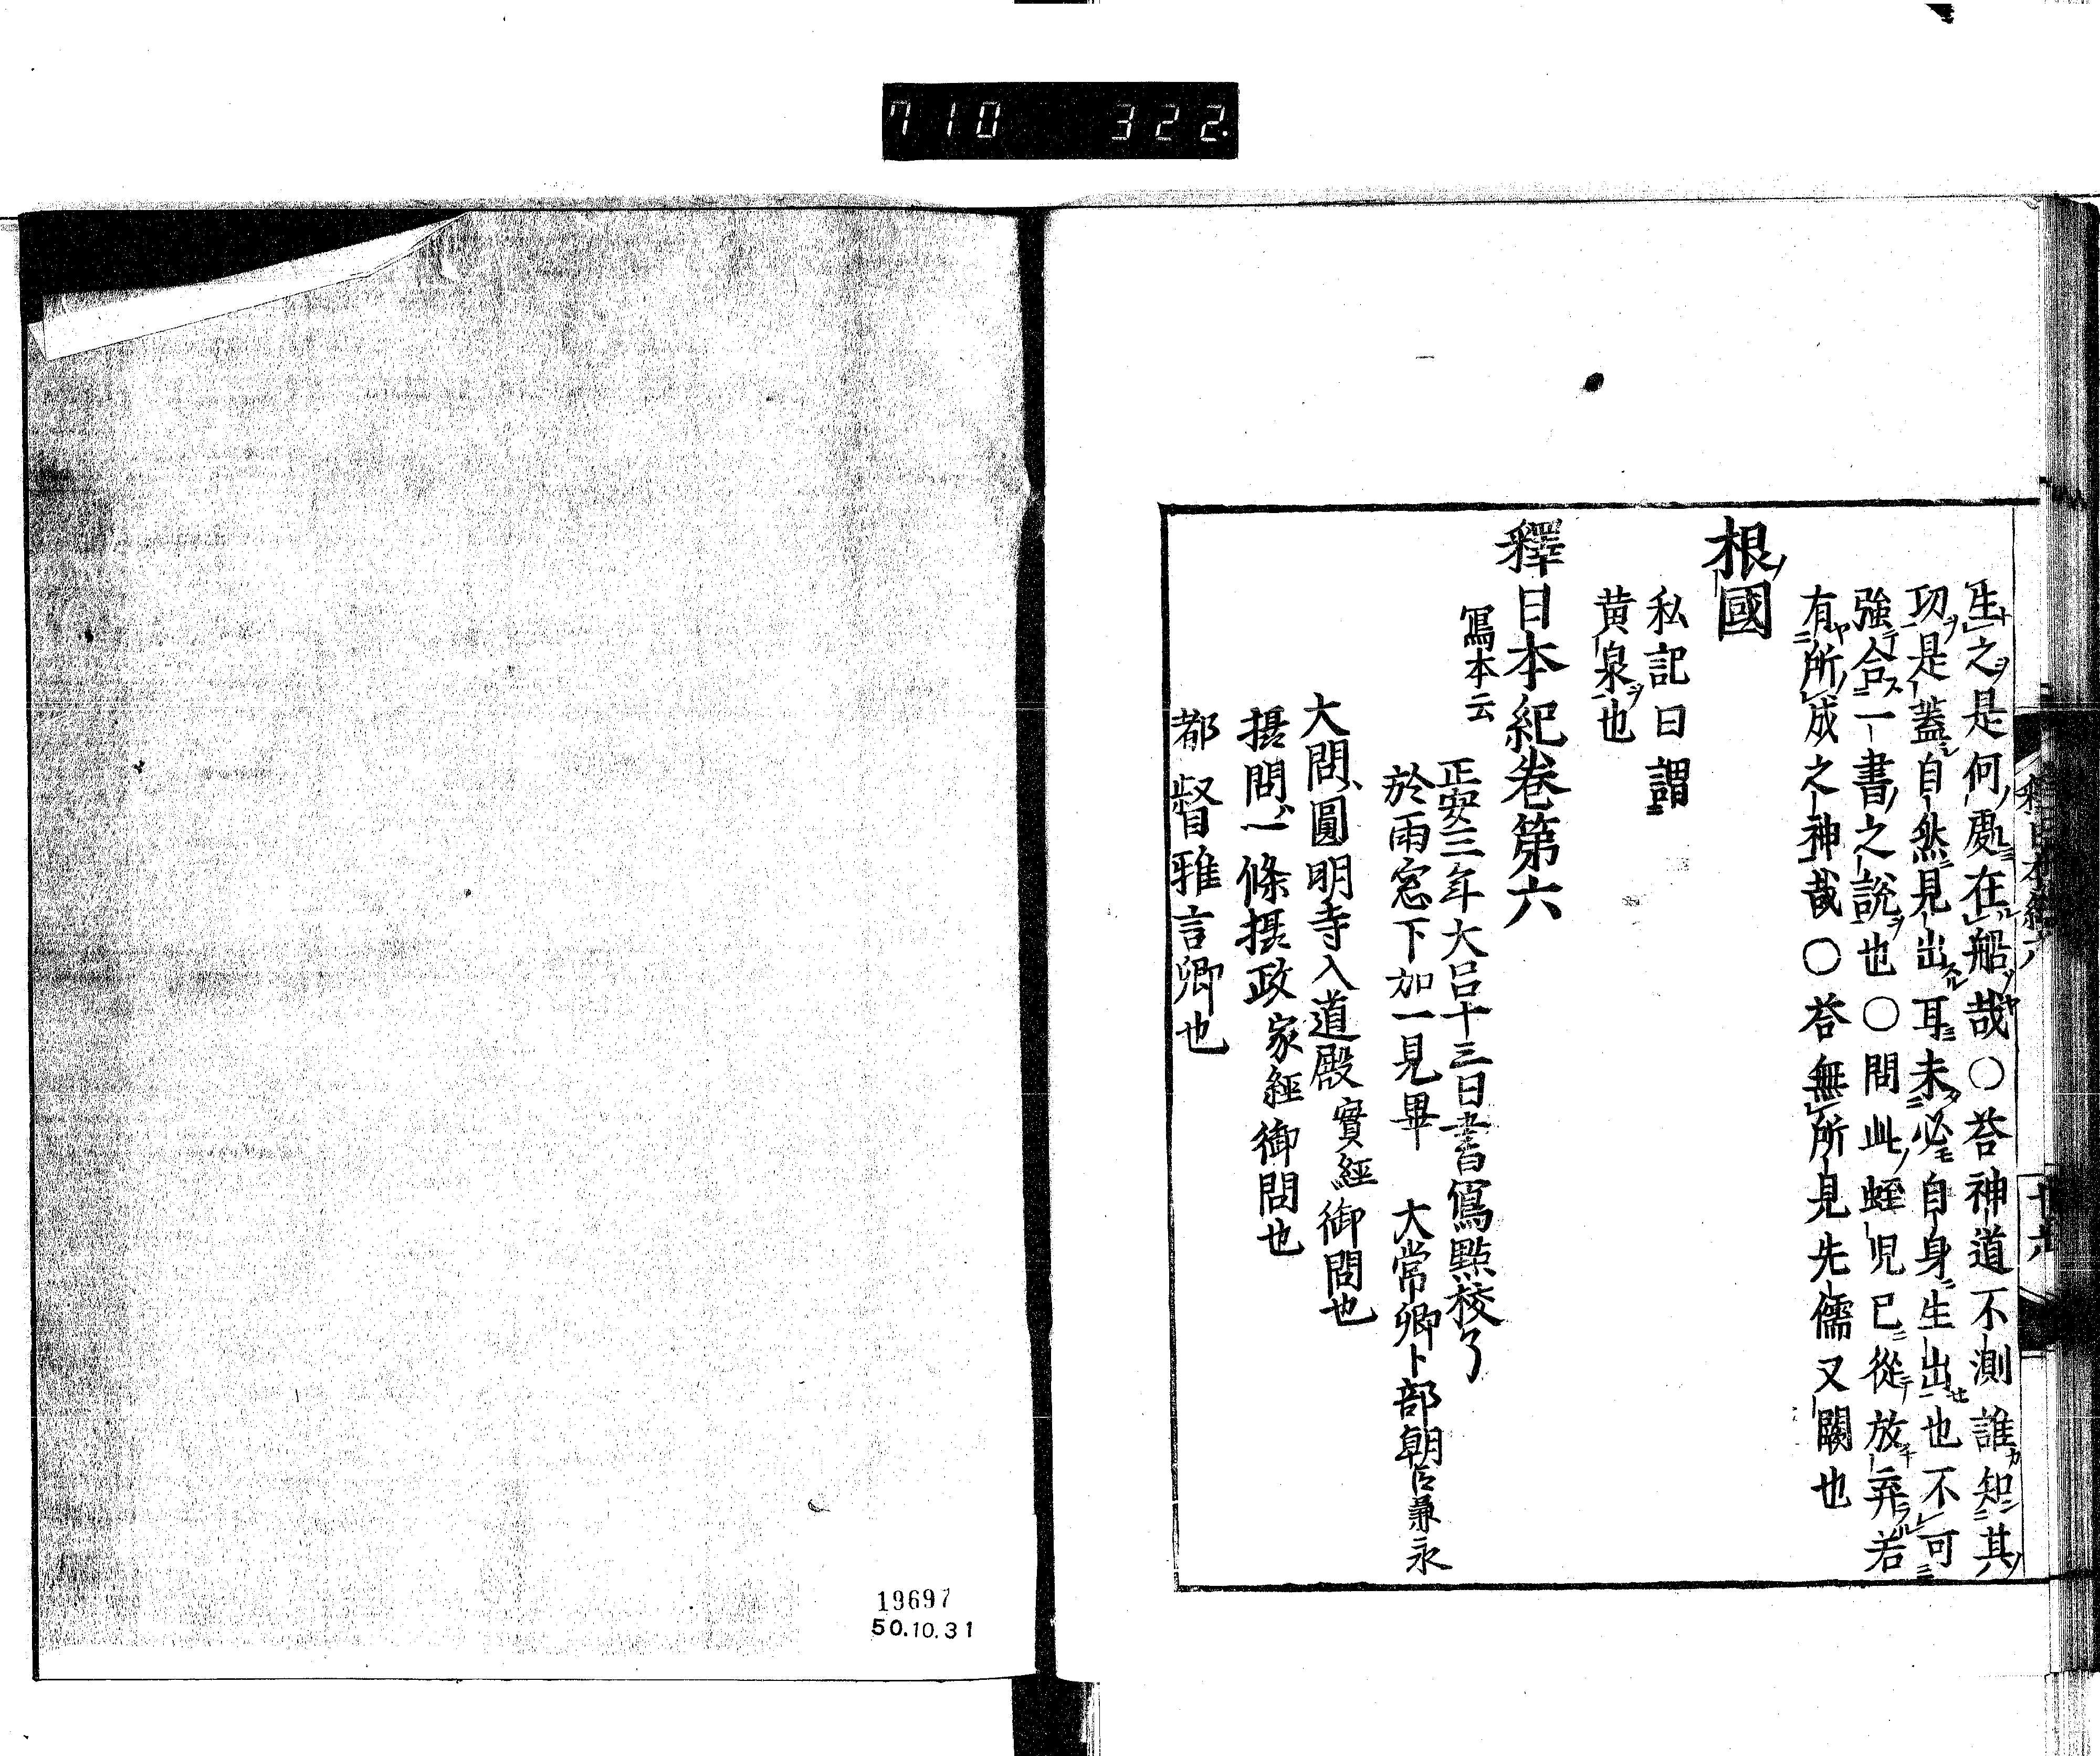 710 322
生之是何處在船哉○荅神道不測誰知其
功是蓋自然見出耳未必自身生出也不可
強合一書之說也○問此蛭児已從放弃若
有所成之神哉○荅無所見先儒又闕也
根國
私記曰謂
黄泉也
釋日本紀卷第六
寫本云
正安三年大呂十三日書寫點校了
於雨窓下加一見畢 大常卿卜部朝臣兼永
大問、圓明寺入道殿實經御問也
摂問、一條摂政家經御問也
都督雅言卿也
19697
50.10.31